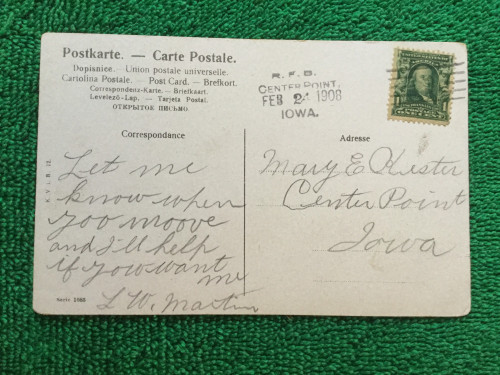 Postkarte. — Carte Postale.
Dopisnice. — Union postale universelle.
Cartolina Postale. — Post Card. — Brefkort.
Correspondenz-Karte. — Briefkaart.
Levelező-Lap. — Tarjeta Postal.
ОТКРЫТОЕ ПИСЬМО
R.F.D.
CENTER POINT,
FEB 24 1908
IOWA.
Correspondance
Adresse
K. V. i. B. 12.
Let me
know when
you moove
and I'll help
if you want
me
L W. Martin
Serie 1966
Mary E
Center Point
Iowa